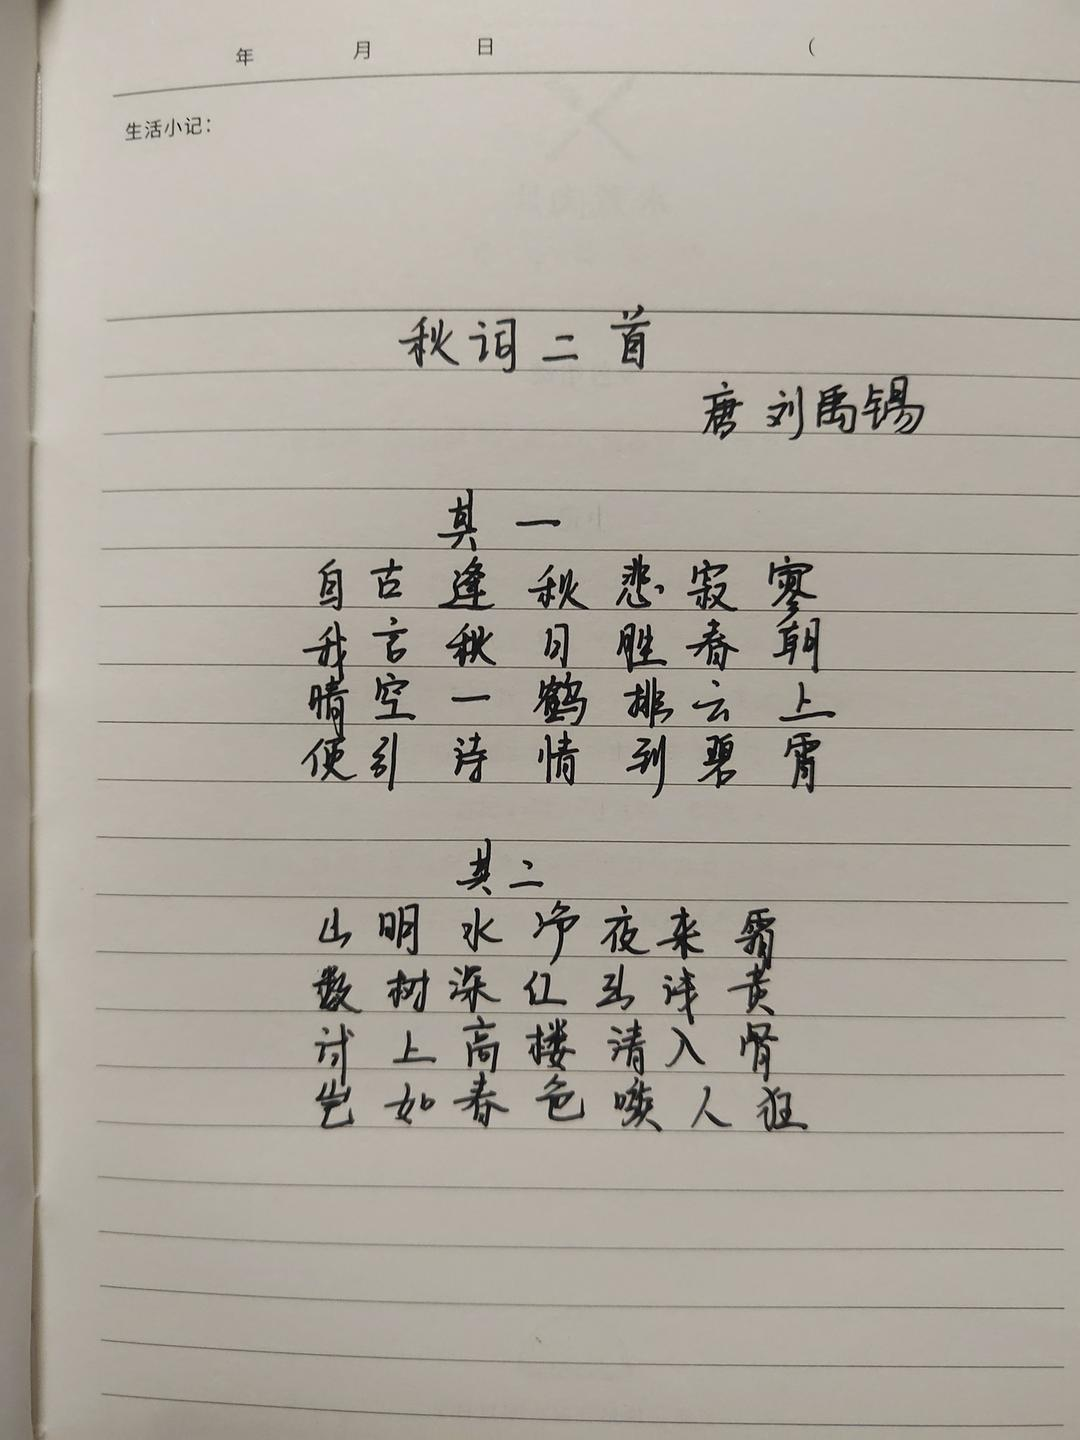 年 月 日 (
生活小记：
秋词二首
唐 刘禹锡
其一
自古逢秋悲寂寥
我言秋日胜春朝
晴空一鹤排云上
便引诗情到碧霄
其二
山明水净夜来霜
数树深红出浅黄
试上高楼清入骨
岂如春色嗾人狂